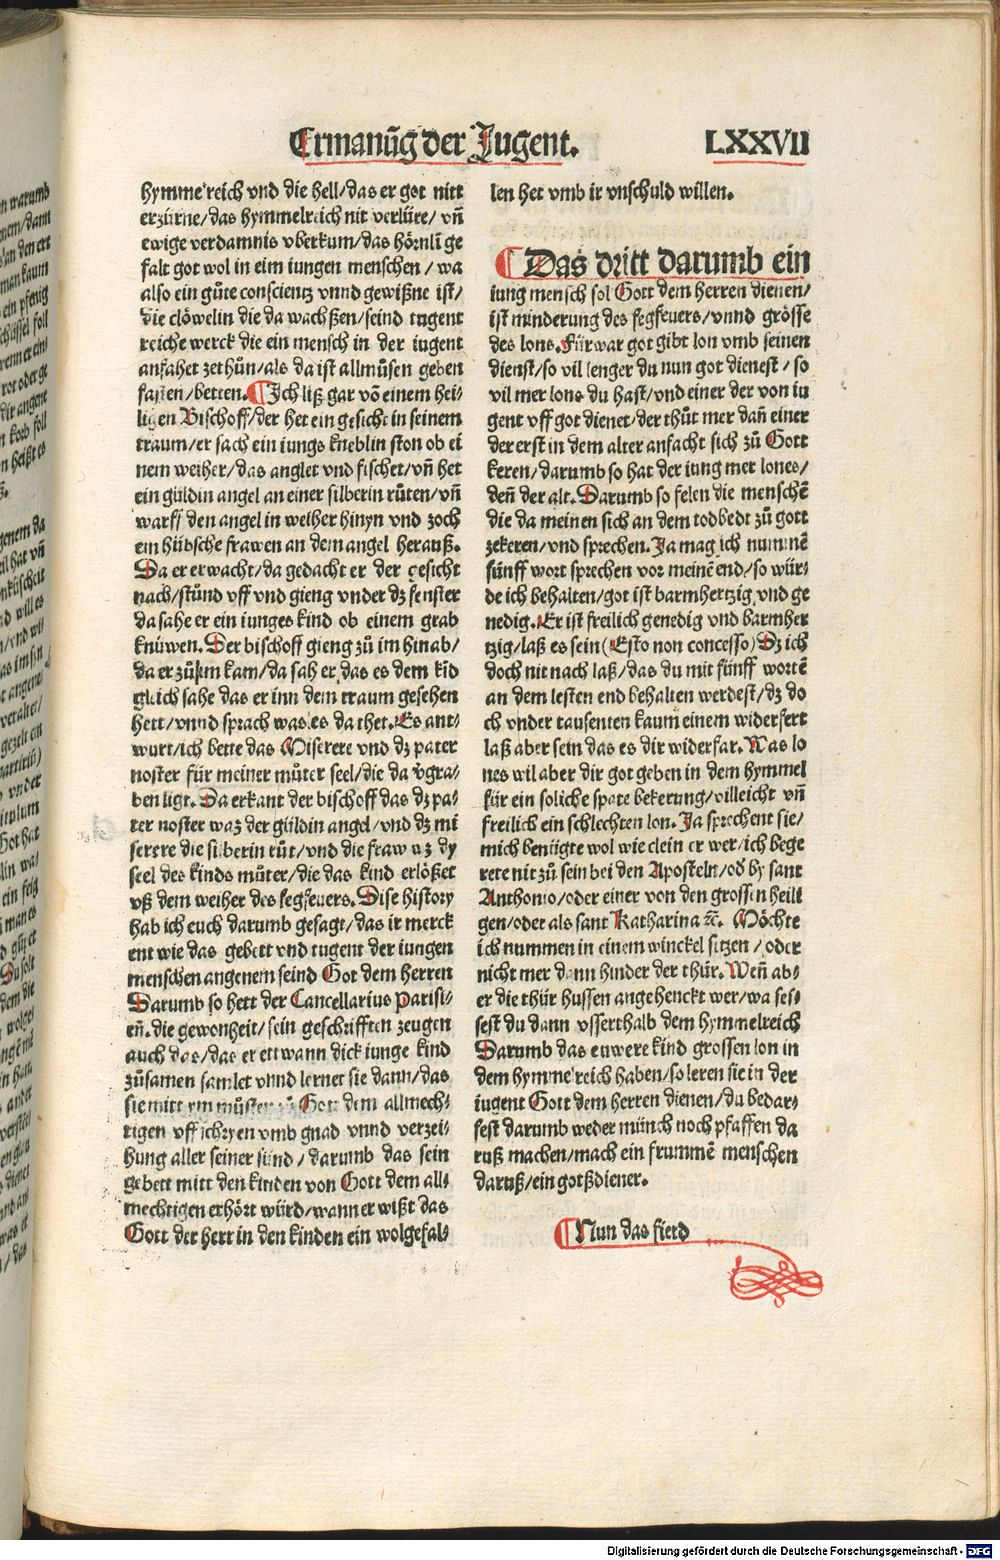 Ermanūg der Jugent. LXXVII
hymmelreich vnd die hell/das er got nitt
erzürne/das hymmelreich nit verlüre/ vñ
ewige verdamnis vberkum/das hörnlī ge
falt got wol in eim iungen menschen / wa
also ein gůte conscientz vnnd gewißne ist/
die clöwelin die da wachßen/seind tugent
reiche werck die ein mensch in der iugent
anfahet zethůn/als da ist allmůsen geben
fasten/betten. ¶ Ich liß gar võ einem hei/
ligen Bischoff/der het ein gesicht in seinem
traum/er sach ein iungs kneblin ston ob ei
nem weiher/das anglet vnd fischet/vñ het
ein güldin angel an einer silberin růten/vñ
warff den angel in weiher hinyn vnd zoch
ein hübsche frawen an dem angel herauß.
Da er erwacht/da gedacht er der gesicht
nach/stůnd vff vnd gieng vnder dz fenster
da sahe er ein iunges kind ob einem grab
knüwen. Der bischoff gieng zů im hinab/
da er zů im kam/da sah er das es dem kīd
gleich sahe das er inn dem traum gesehen
hett/vnnd sprach was es da thet. Es ant/
wurt/ich bette das Miserere vnd dz pater
noster für meiner můter seel/die da vgra/
ben ligt. Da erkant der bischoff das dz pa/
ter noster waz der güldin angel/vnd dz mi
serere die silberin růt/vnd die fraw waz dy
seel des kinds můter/die das kind erlößet
vß dem weiher des fegfeuers. Dise history
hab ich euch darumb gesagt/das ir merck
ent wie das gebett vnd tugent der iungen
menschen angenem seind Got dem herren
Darumb so hett der Cancellarius Parisi/
eñ. die gewonheit/ sein geschrifften zeugen
auch das/das er ettwann dick iunge kind
zůsamen samlet vnnd lernet sie dann/das
sie mitt ym můsten zů Gott dem allmech/
tigen vff schryen vmb gnad vnnd verzei/
hung aller seiner sünd / darumb das sein
gebett mitt den kinden von Gott dem all/
mechtigen erhört würd/wann er wißt das
Gott der herr in den kinden ein wolgefal/
len het vmb ir vnschuld willen.
¶ Das dritt darumb ein
iung mensch sol Gott dem herren dienen/
ist minderung des fegfeuers/vnnd grösse
des lons. Fürwar got gibt lon vmb seinen
dienst/so vil lenger du nun got dienest / so
vil mer lons du hast/vnd einer der von iu
gent vff got dienet/der thůt mer dañ einer
der erst in dem alter anfacht sich zů Gott
keren/darumb so hat der iung mer lones/
deñ der alt. Darumb so felen die menschē
die da meinen sich an dem todbedt zů gott
zekeren/vnd sprechen. Ja mag ich nummē
fünff wort sprechen vor meinē end/so wür/
de ich behalten/got ist barmhertzig vnd ge
nedig. Er ist freilich genedig vnd barmher
tzig/laß es sein (Esto non concesso) Dz ich
doch nit nach laß/das du mit fünff wortē
an dem lesten end behalten werdest/dz do
ch vnder tausenten kaum einem widerfert
laß aber sein das es dir widerfar. Was lo
nes wil aber dir got geben in dem hymmel
für ein soliche spate bekerung/villeicht vñ
freilich ein schlechten lon. Ja sprechent sie/
mich benügte wol wie clein er wer/ich bege
rete nit zů sein bei den Aposteln/od by sant
Anthonio/oder einer von den grossen heili
gen/oder als sant Katharina ⁊c. Möchte
ich nummen in einem winckel sitzen / oder
nicht mer dann hinder der thür. Weñ ab/
er die thür hussen angehenckt wer/wa ses/
sest du dann vsserthalb dem hymmelreich
Darumb das euwere kind grossen lon in
dem hymmelreich haben/so leren sie in der
iugent Gott dem herren dienen/du bedar/
fest darumb weder münch noch pfaffen da
ruß machen/mach ein frummē menschen
daruß/ein gotßdiener.
¶ Nun das fierd
Digitalisierung gefördert durch die Deutsche Forschungsgemeinschaft - DFG